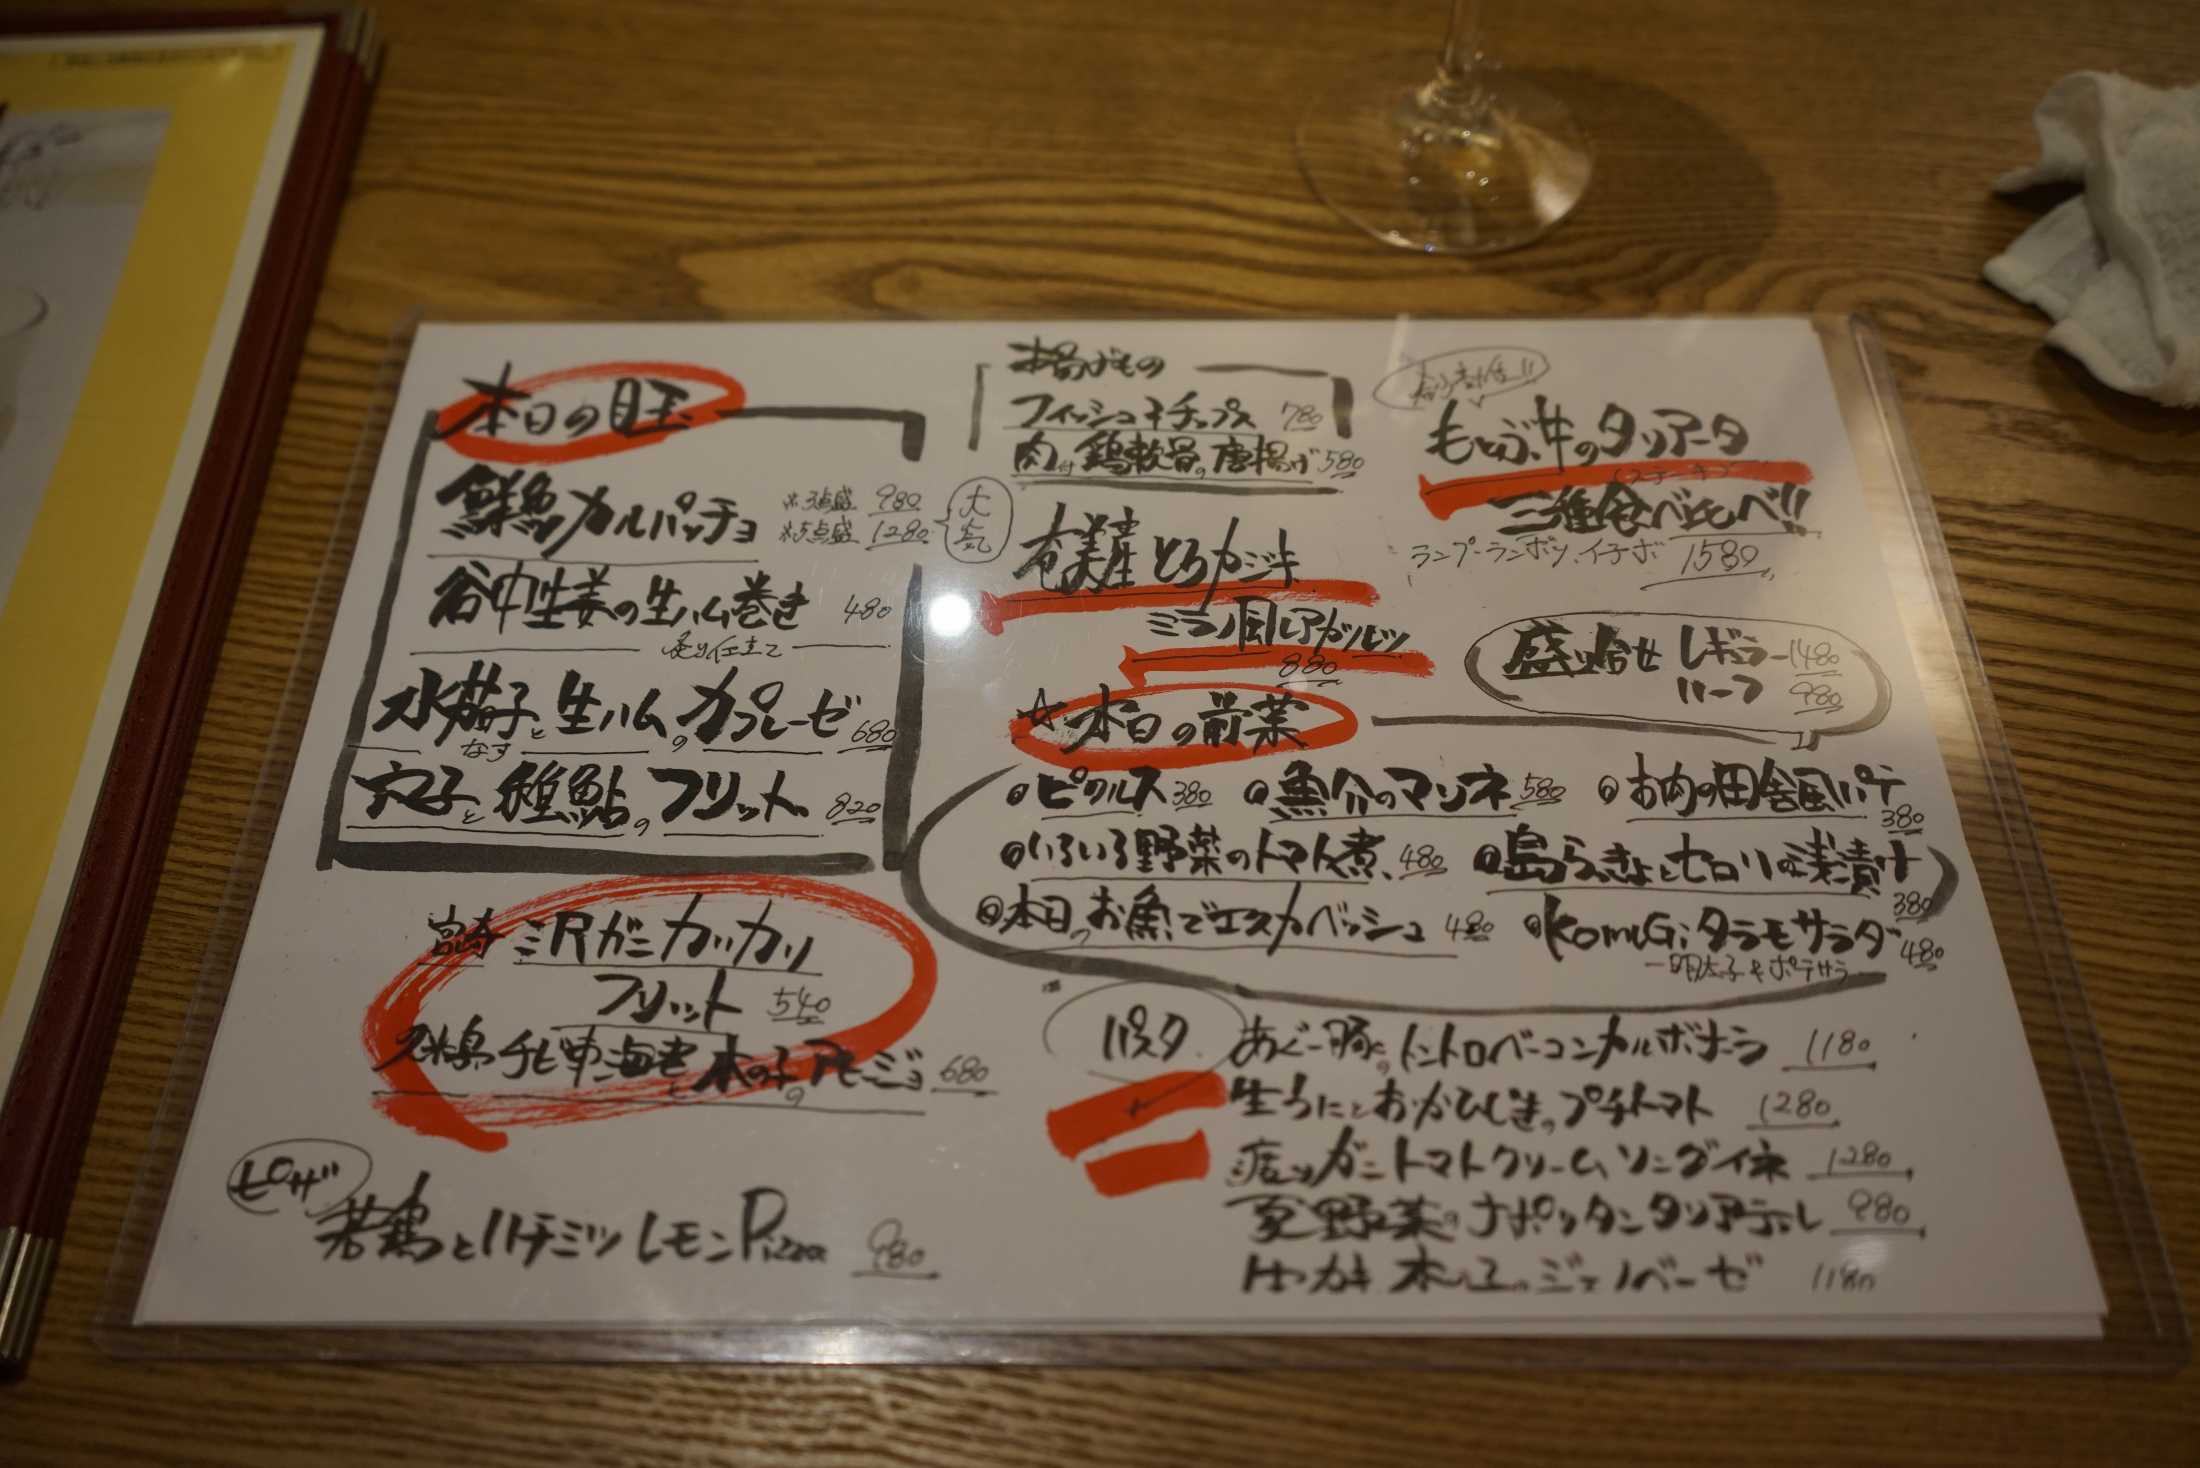 本日の目玉
鮮魚カルパッチョ ※3点盛 980
※5点盛 1280
谷中生姜の生ハム巻き 480
炙り仕立て
水茄子と生ハムのカプレーゼ 680
なす
穴子と稚鮎のフリット 820
宮崎 三尺ガニカリカリ
フリット 540
久米島チビ車海老と木の子のアヒージョ 680
ピッザ
若鶏とハチミツレモンPizza 980
揚げもの
フィッシュ&チップス 780
肉付鶏軟骨の唐揚げ 580
奄美産とろカジキ
ミラノ風レアカツレツ
880
もとぶ牛のタリアータ
(ステーキ)
三種食べ比べ!!
ランプ・ランボソ、イチボ 1580
盛り合せ レギュラー 1480
ハーフ 980
☆本日の前菜
ピクルス 380 魚介のマリネ 580 お肉の田舎風パテ 380
いろいろ野菜のトマト煮 480 島らっきょとセロリの浅漬け 380
本日のお魚でエスカベッシュ 480 KomuGiタラモサラダ 480
明太子&ポテサラ
パスタ
あぐー豚のトントロベーコンカルボナーラ 1180
生うにとおかひじきのプチトマト 1280
渡りガニトマトクリームリングイネ 1280
夏野菜のナポリタンタリアテレ 980
ジェノベーゼ 1180